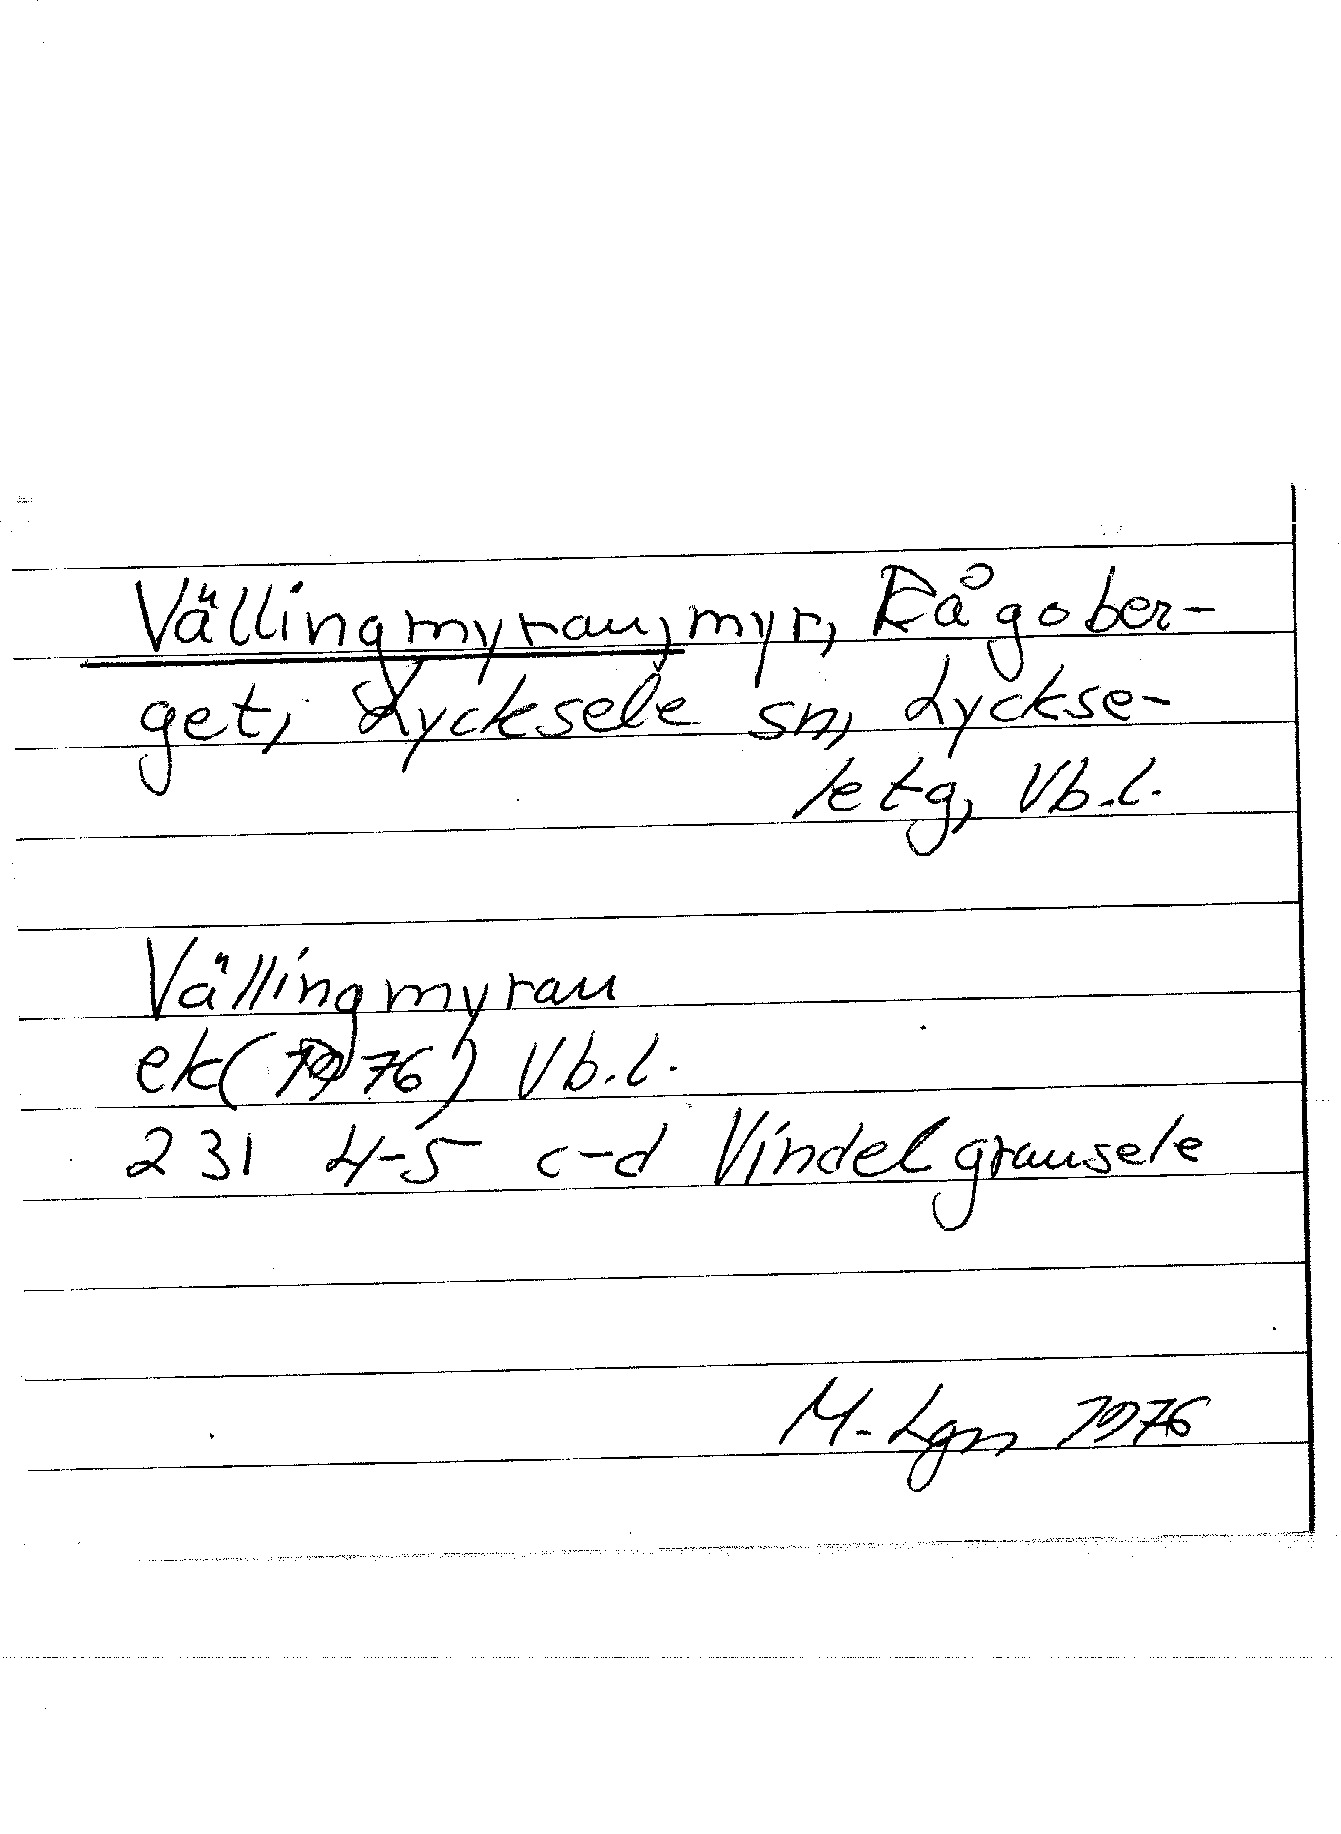 Vällingmyran, myr, Rågober-
get, Lycksele sn, Lyckse-
le tg, Vb.l.
Vällingmyran
ek (1976) Vb.l.
231 4-5 c-d Vindelgransele
M. Lgn 1976